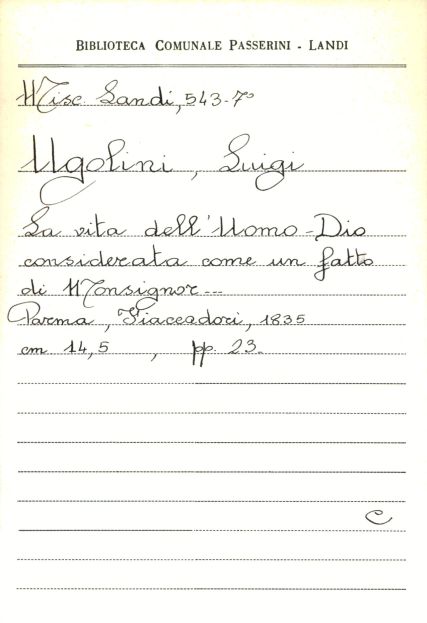 BIBLIOTECA COMUNALE PASSERINI - LANDI
Misc. Landi, 543-7°
Ugolini, Luigi
La vita dell'Uomo-Dio
considerata come un fatto
di Monsignor...
Parma, Fiaccadori, 1835
cm 14,5 , pp. 23.
C